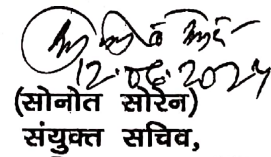 12.08.2024
(सोनोत सोरेन)
संयुक्त सचिव,